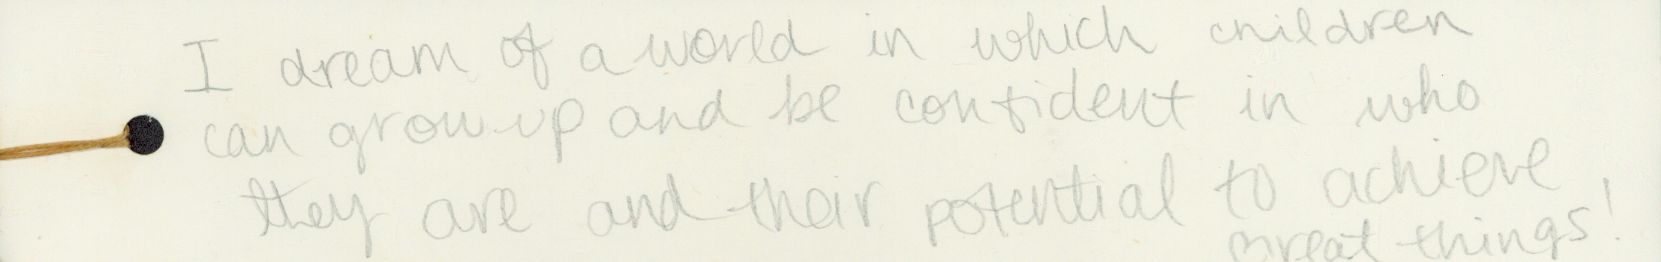 I dream of a world in which children
can grow up and be confident in who
they are and their potential to achieve
great things!